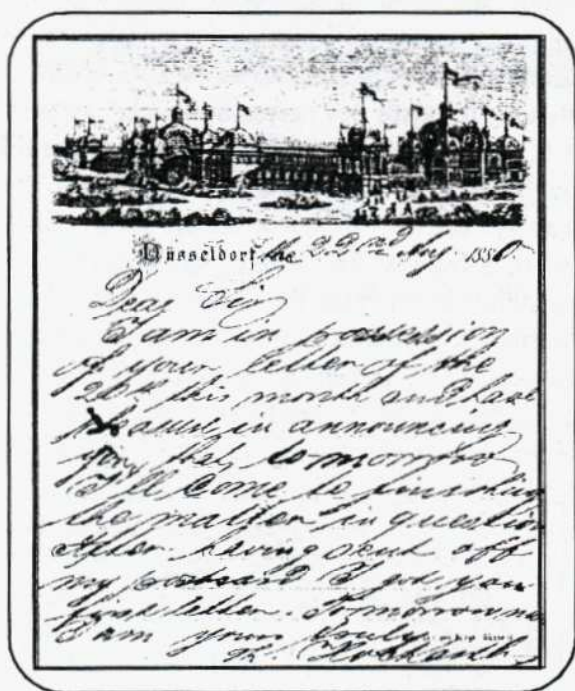 Düsseldorf, the 22nd Aug. 1880.
Dear Sir,
I am in possession
of your letter of the
20th this month and have
pleasure in announcing
you, that to-morrow
I'll come to finishing
the matter in question
After having sent off
my postcard I got your
first letter. Tomorrow
I am yours truly